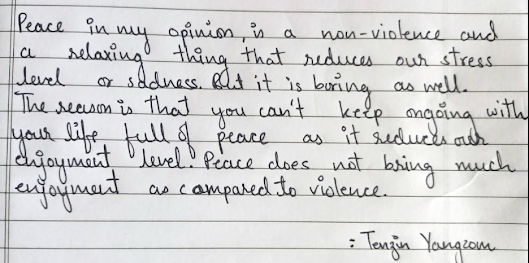 Peace in my opinion, is a non-violence and
a relaxing thing that reduces our stress
level or sadness. But it is boring as well.
The reason is that you can't keep ongoing with
your life full of peace as it reduces our
enjoyment level. Peace does not bring much
enjoyment as compared to violence.
: Tenzin Yangzom